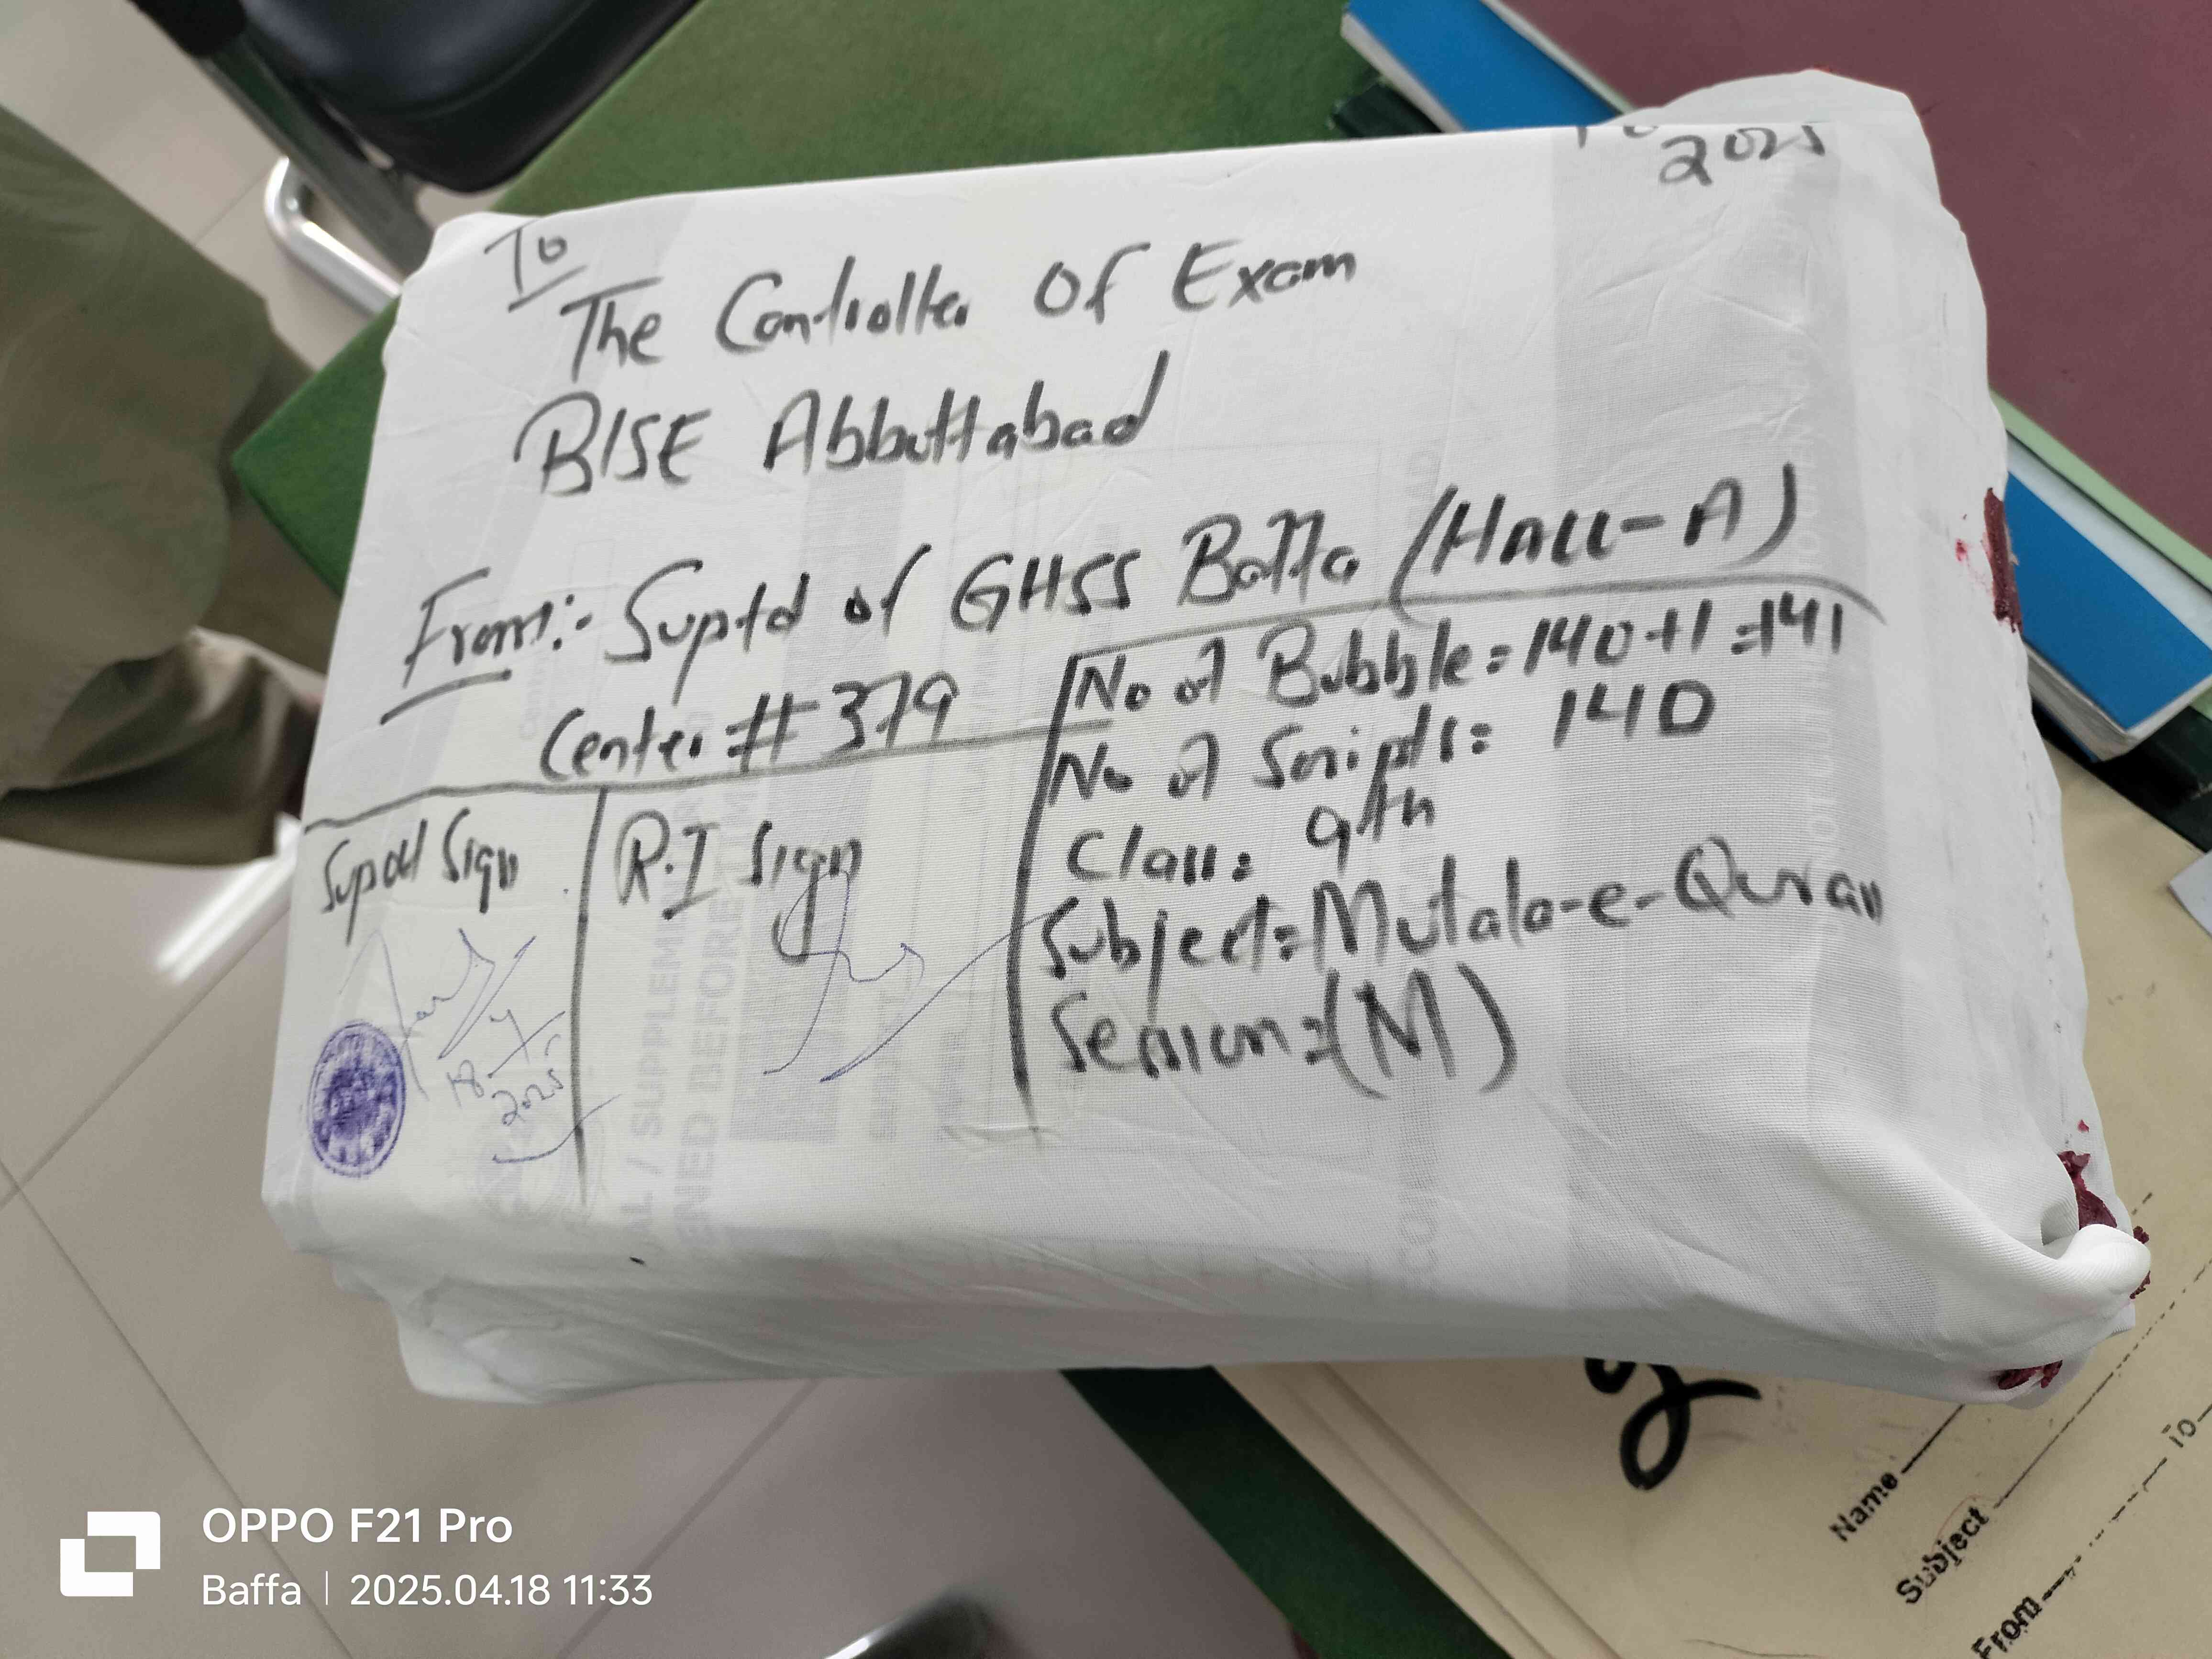 2025
To
The Controller Of Exam
BISE Abbuttabad
From:- Suptd of GHSS Baffa (HALL-A)
Center # 379
No of Bubble = 140+1 = 141
No of Scripts = 140
Class: 9th
Subject: Mutala-e-Quran
Session: (M)
Supdt Sign
R.I Sign
18/4/2025
AL / SUPPLEMEN
ENED BEFORE
Name
Subject
From
To
OPPO F21 Pro
Baffa | 2025.04.18 11:33